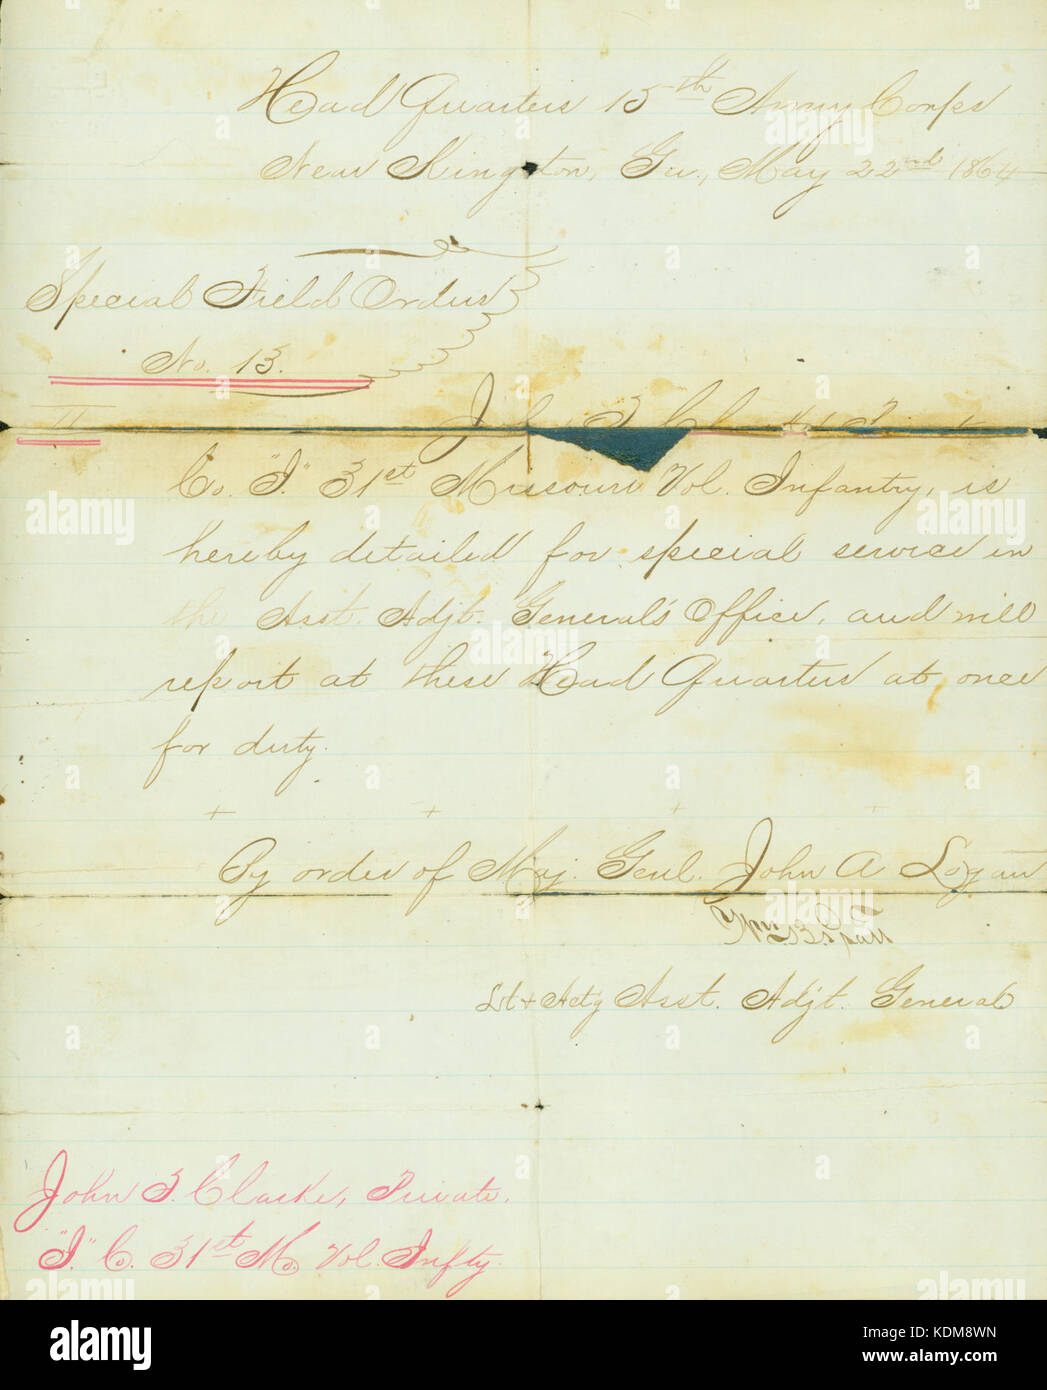 Head Quarters 15th Army Corps
Near Kingston, Ga., May 22nd 1864
Special Field Orders
No. 13.
II
Co. "I" 31st Missouri Vol. Infantry, is
hereby detailed for special service in
the Asst. Adjt. General's Office, and will
report at these Head Quarters at once
for duty.
By order of Maj. Genl. John A Logan
Lt & Actg Asst. Adjt. General
John T. Clarke, Private.
"I" Co. 31st Mo. Vol. Infty.
alamy
Image ID: KDM8WN
www.alamy.com